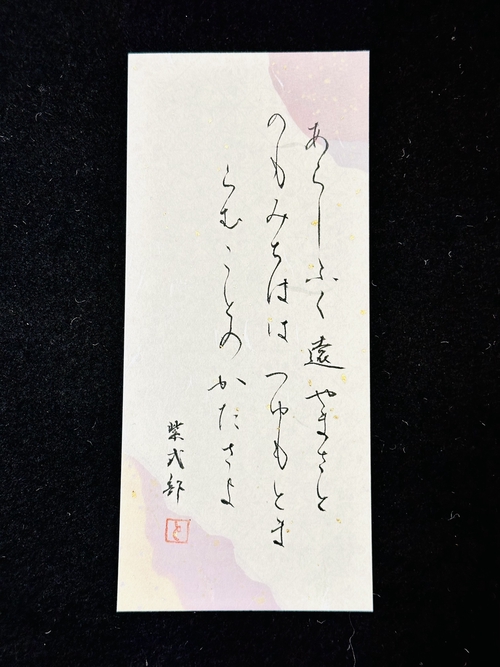 あらしふく遠やまさと
のもみちははつゆもとま
らむことのかたさよ
紫式部
と